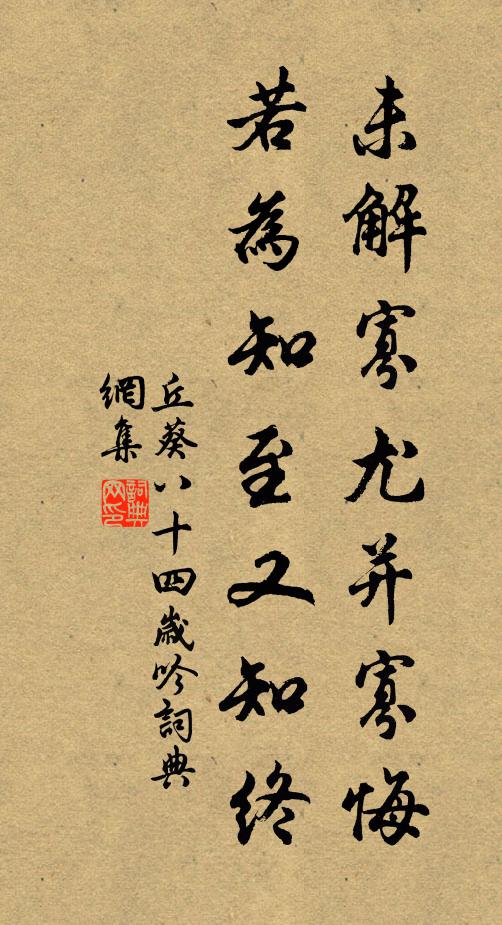 未解寡尤并寡悔
若為知至又知終
丘葵八十四歲吟詞典
網集
詞典網印